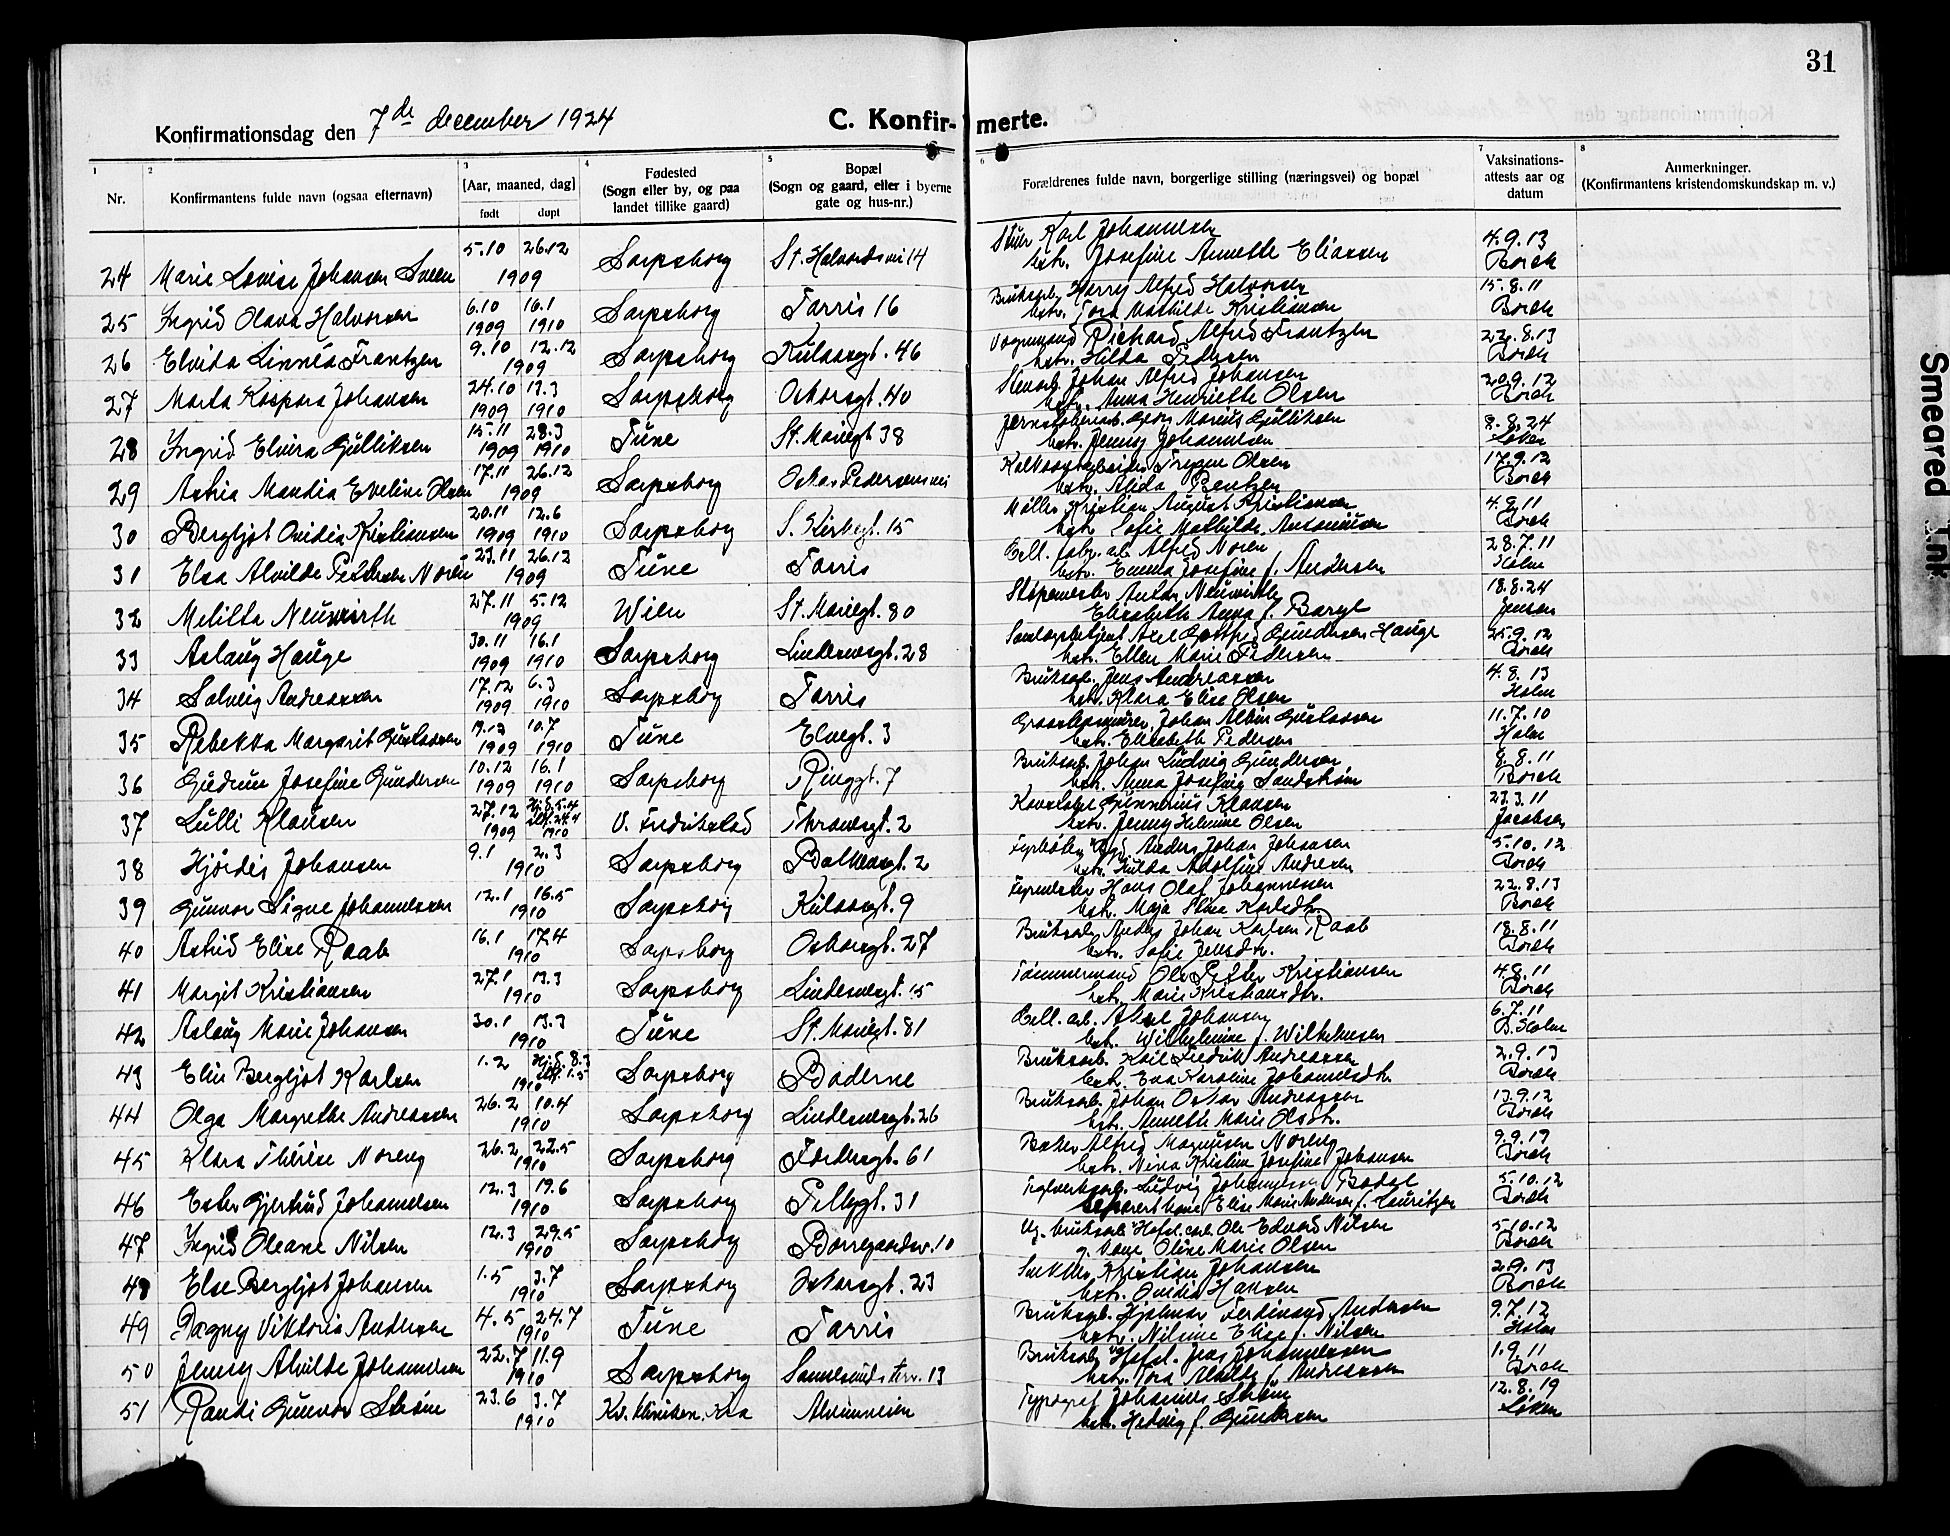 31
Konfirmationsdag den 7de december 1924
C. Konfirmerte.
1 2 3 4 5 6 7 8
Nr.
Konfirmantens fulde navn (ogsaa efternavn)
[Aar, maaned, dag]
født døpt
Fødested
(Sogn eller by, og paa
landet tillike gaard)
Bopæl
(Sogn og gaard, eller i byerne
gate og hus-nr.)
Forældrenes fulde navn, borgerlige stilling (næringsvei) og bopæl
Vaksinations-
attests aar og
datum
Anmerkninger.
(Konfirmantens kristendomskundskap m. v.)
24 Marie Lovise Johansen Sveen 5.10 26.12 1909 Sarpsborg St. Halvordsvei 14 Karl Johannesen 4.9.13
hstr. Josefine Annette Eliassen Borch
25 Ingrid Olava Halvorsen 6.10 1909 16.1 1910 Sarpsborg Tarris 16 Bruksarb. Herry Alfred Halvorsen 15.8.11
hstr. Tora Mathilde Kristiansen Borch
26 Elvida Linnéa Frantzen 9.10 12.12 1909 Sarpsborg Kulaasgt. 46 Vognmand Richard Alfred Frantzen 22.8.13
hstr. Hilda Pedersen Borch
27 Marta Kaspara Johansen 24.10 1909 13.3 1910 Sarpsborg Oskarsgt. 40 Stenarb. Johan Alfred Johansen 20.9.12
hstr. Anna Henriette Olsen Borch
28 Ingrid Elvira Gulliksen 15.11 1909 28.3 1910 Tune St. Mariegt 38 Jernstøberiarb. Georg Marius Gulliksen 8.8.24
hstr. Jenny Johannesen Løken
29 Astria Mandia Eveline Olsen 17.11 26.12 1909 Sarpsborg Oskar Pedersensvei Trygve Olsen 17.9.12
hstr. Alida Bentzen Borch
30 Bergljot Ovidia Kristiansen 20.11 1909 12.6 1910 Sarpsborg S. Kirkegt. 15 Møller Kristian August Kristiansen 4.9.11
hstr. Sofie Mathilde Antonisen Borch
31 Elsa Alvilde Pettersen Norén 23.11 26.12 1909 Tune Tarris Cell. fabr. arb. Alfred Noren 28.7.11
hstr. Emma Josefine f. Andersen Holm
32 Melitta Neuwirth 27.11 5.12 1909 Wien St. Mariegt. 80 Støpemester Anton Neuwirth 18.8.24
Elisabeth Anna f. Baryl Jensen
33 Aslaug Hauge 30.11 1909 16.1 1910 Sarpsborg Lindemosgt. 28 Axel Gottfred Gundersen Hauge 25.9.12
hstr. Ellen Marie Pedersen Borch
34 Solveig Andreassen 17.12 1909 6.3 1910 Sarpsborg Tarris Bruksarb. Jens Andreassen 4.8.13
hstr. Klara Elise Olsen Holm
35 Rebekka Margarit Gustavsen 19.12 1909 10.7 1910 Tune Elvegt. 3 Johan Albin Gustavsen 11.7.10
hstr. Elisabeth Pedersen Holm
36 Gudrun Josefine Gundersen 10.12 1909 16.1 1910 Sarpsborg Ringgt. 7 Bruksarb. Johan Ludvig Gundersen 8.8.11
hstr. Anna Josefine Sandstrøm Borch
37 Lulli Klausen 27.12 1909 Hj.d. 5.4 24.4 1910 V. Fredrikstad Thranesgt. 2 Gunnerius Klausen 23.3.11
hstr. Jenny Helmine Olsen Jacobsen
38 Hjördis Johansen 9.1 2.3 1910 Sarpsborg Balkeasgt. 2 Anders Johan Johansen 5.10.12
hstr. Hulda Adolfine Andresen Borch
39 Gunvor Signe Johannessen 12.1 16.5 1910 Sarpsborg Kulaasgt. 9 Fyrmester Hans Olaf Johannessen 22.8.13
hstr. Maja Stina Karlsdtr. Borch
40 Astrid Elise Raab 16.1 17.4 1910 Sarpsborg Oskarsgt. 27 Bruksarb. Anders Johan Karlsen Raab 18.8.11
hstr. Sofie Jensdtr. Borch
41 Margit Kristiansen 27.1 13.3 1910 Sarpsborg Lindemosgt. 15 Tømmermand Ole Petter Kristiansen 4.8.11
hstr. Marie Kristiansdtr. Borch
42 Aslaug Marie Johansen 30.1 13.3 1910 Tune St. Mariegt. 81 Cell. arb. Aksel Johansen 6.7.11
hstr. Wilhelmine f. Wilhelmsen B. Holm
43 Elin Bergljot Karlsen 1.2 Hj.d. 8.3 1.5 1910 Sarpsborg Baderne Bruksarb. Karl Fredrik Andreassen 2.9.13
hstr. Eva Karoline Johannesdtr. Borch
44 Olga Margrethe Andreassen 26.2 10.4 1910 Sarpsborg Lindemosgt. 26 Bruksarb. Johan Oskar Andreassen 13.9.12
hstr. Annette Marie Olsdtr. Borch
45 Klara Thérèse Noreng 26.2 22.5 1910 Sarpsborg Fordersgt. 61 Alfred Magnusen Noreng 9.9.13
hstr. Nina Kristine Josefine Johansen Borch
46 Ester Gjertrud Johannesen 12.3 19.6 1910 Sarpsborg Pellygt. 31 Ludvig Johannesen Bodal 5.10.12
Separert kone Elise Marie Andersen f. Lauritzen Borch
47 Ingrid Oleane Nilsen 12.3 29.5 1910 Sarpsborg Borregaardsv. 10 Ug. bruksarb. Ole Edvard Nilsen 5.10.12
g. Pige Oline Marie Olsen Borch
48 Else Bergljot Johansen 1.5 3.7 1910 Sarpsborg Oskarsgt. 23 Snekker Kristian Johansen 2.9.13
hstr. Ovidia Hansen Borch
49 Dagny Viktoria Andersen 4.5 24.7 1910 Tune Tarris Bruksarb. Hjalmar Ferdinand Andersen 9.7.12
hstr. Nilsine Elise f. Nilsen Holm
50 Jenny Alvilde Johannesen 22.7 11.9 1910 Sarpsborg Sannesundsterr. 13 Bruksarb. Jens Johannessen 1.9.11
hstr. Tora Alvilde f. Andreassen Borch
51 Randi Gunvor Strøm 23.6 3.7 1910 Kv. kliniken, Kra Alvimveien Typograf Johannes Strøm 12.8.19
hstr. Hedvig f. Gundersen Løken
Smeared Ink